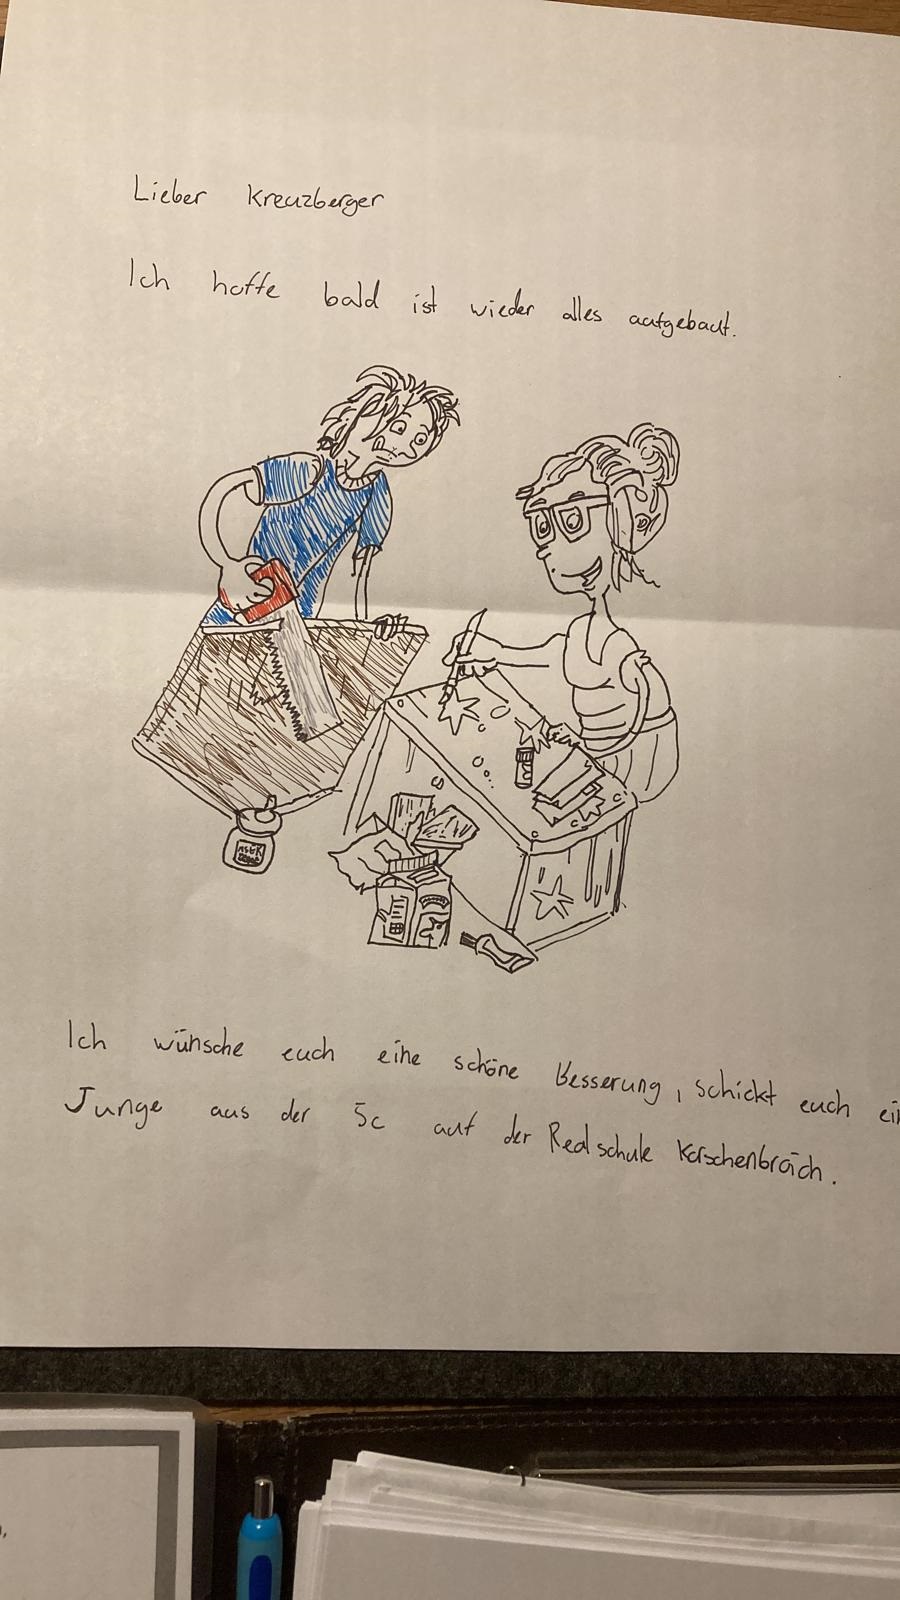 Lieber Kreuzberger
Ich hoffe bald ist wieder alles aufgebaut.
Ich wünsche euch eine schöne Besserung, schickt euch ein
Junge aus der 5c auf der Realschule